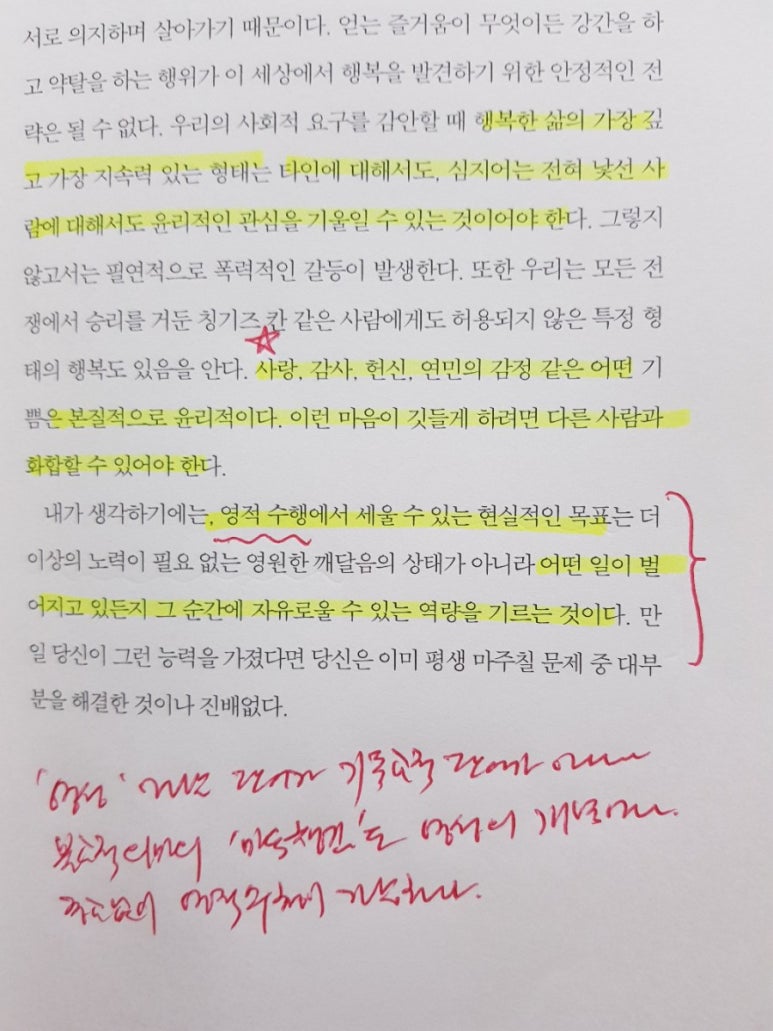 서로 의지하며 살아가기 때문이다. 얻는 즐거움이 무엇이든 강간을 하
고 약탈을 하는 행위가 이 세상에서 행복을 발견하기 위한 안정적인 전
략은 될 수 없다. 우리의 사회적 요구를 감안할 때 행복한 삶의 가장 깊
고 가장 지속력 있는 형태는 타인에 대해서도, 심지어는 전혀 낯선 사
람에 대해서도 윤리적인 관심을 기울일 수 있는 것이어야 한다. 그렇지
않고서는 필연적으로 폭력적인 갈등이 발생한다. 또한 우리는 모든 전
쟁에서 승리를 거둔 칭기즈 칸 같은 사람에게도 허용되지 않은 특정 형
태의 행복도 있음을 안다. 사랑, 감사, 헌신, 연민의 감정 같은 어떤 기
쁨은 본질적으로 윤리적이다. 이런 마음이 깃들게 하려면 다른 사람과
화합할 수 있어야 한다.
내가 생각하기에는, 영적 수행에서 세울 수 있는 현실적인 목표는 더
이상의 노력이 필요 없는 영원한 깨달음의 상태가 아니라 어떤 일이 벌
어지고 있든지 그 순간에 자유로울 수 있는 역량을 기르는 것이다. 만
일 당신이 그런 능력을 가졌다면 당신은 이미 평생 마주칠 문제 중 대부
분을 해결한 것이나 진배없다.
'영성' 단어가 기독교적 단어가
'마음챙김'도 영성의 개념이다.
영적 수행이 가능하다.